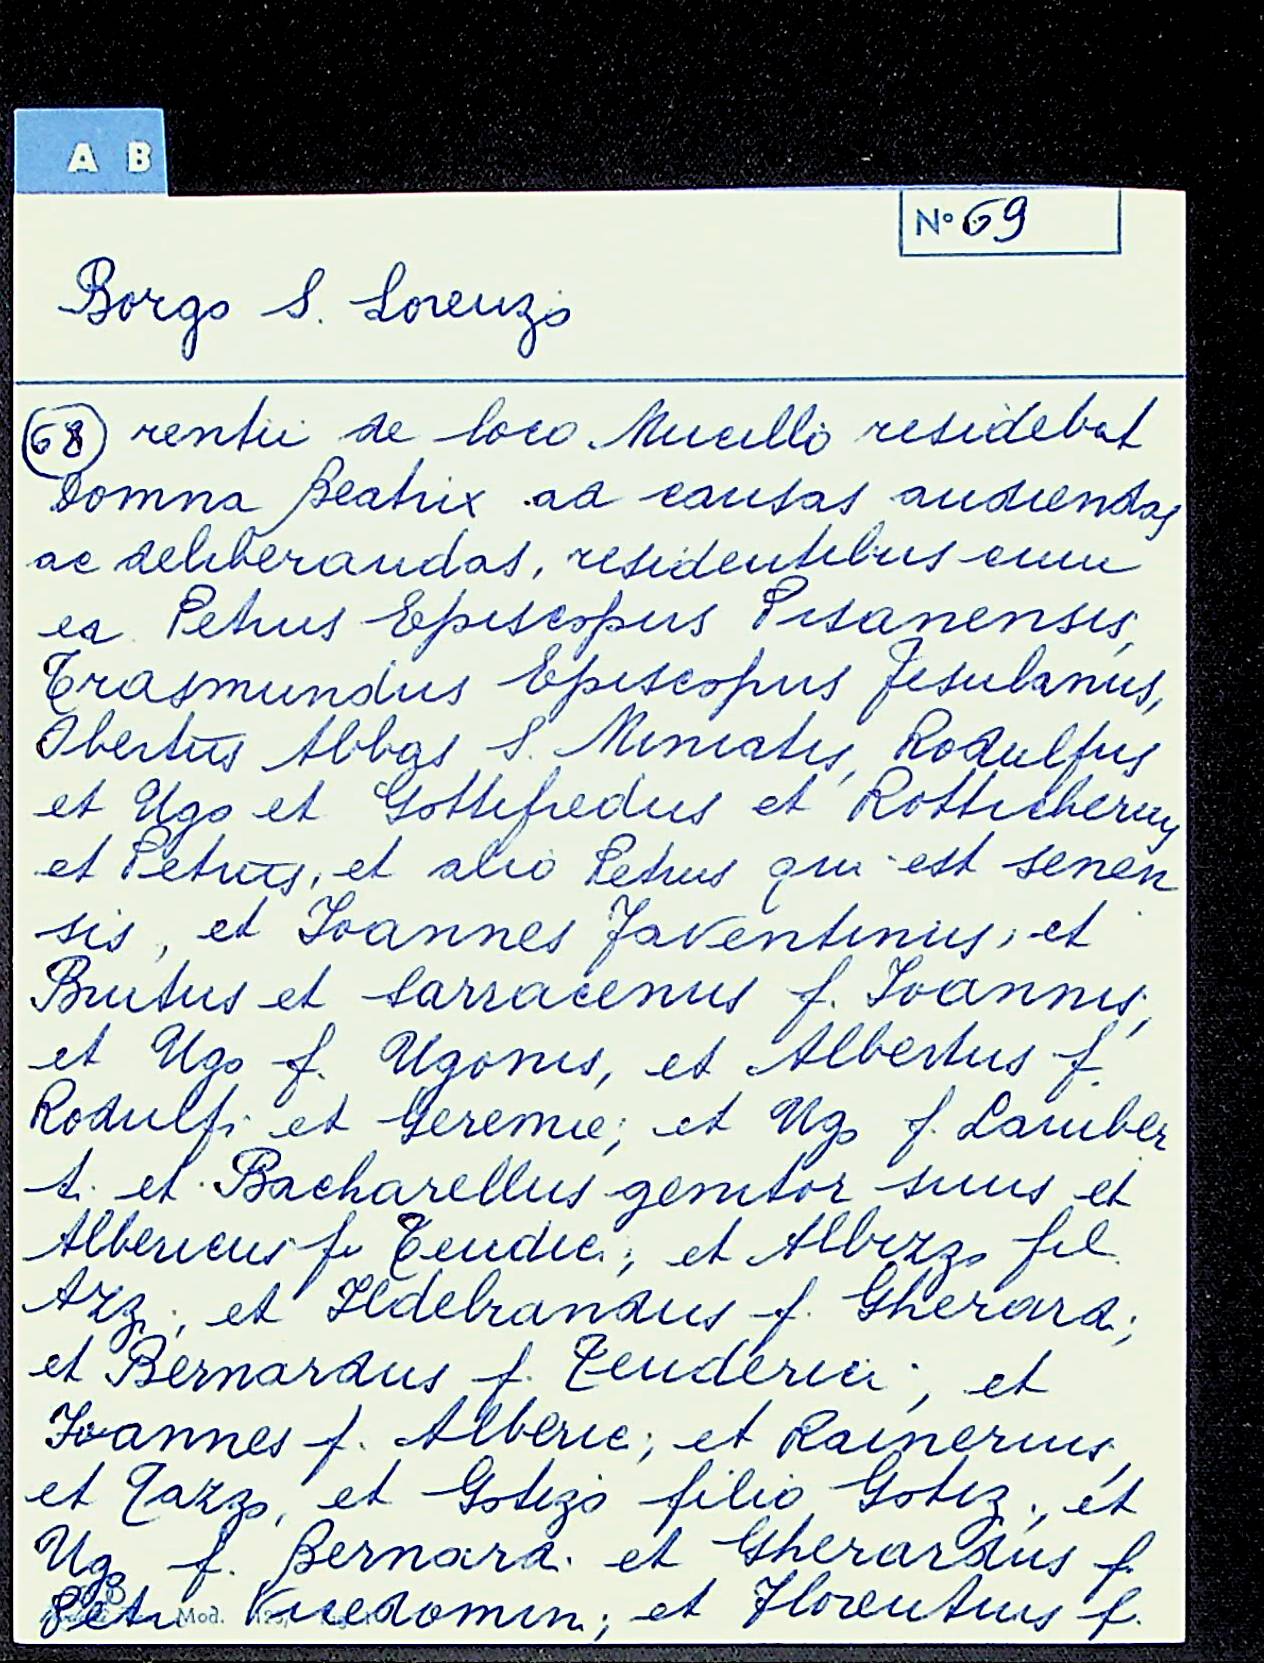 A B
N° 69
Borgo S. Lorenzo
68 rentii de loco Mucello residebat
Domna Beatrix ad causas audiendas
ac deliberandas, residentibus cum
ea Petrus Episcopus Pisanensis,
Trasmundus Episcopus Fesulanus,
Obertus Abbas S. Miniatis, Rodulfus
et Ugo et Gottifredus et Rotticherius
et Petrus, et alio Petrus qui est senen
sis, et Ioannes Faventinus, et
Brutus et Sarracenus f. Ioannis,
et Ugo f. Ugonis, et Albertus f.
Rodulfi et Geremie; et Ugo f. Lamber
ti et Bacharellus genitor suus et
Albericus f. Teudic.; et Albizzo fil.
Azz.; et Ildebrandus f. Gherard.;
et Bernardus f. Teuderici; et
Ioannes f. Alberic; et Rainerius,
et Tazzo, et Gotizo filio Gotiz., et
Ugo f. Bernard. et Gherardus f.
Petri Vicedomin.; et Florentius f.
Mod.